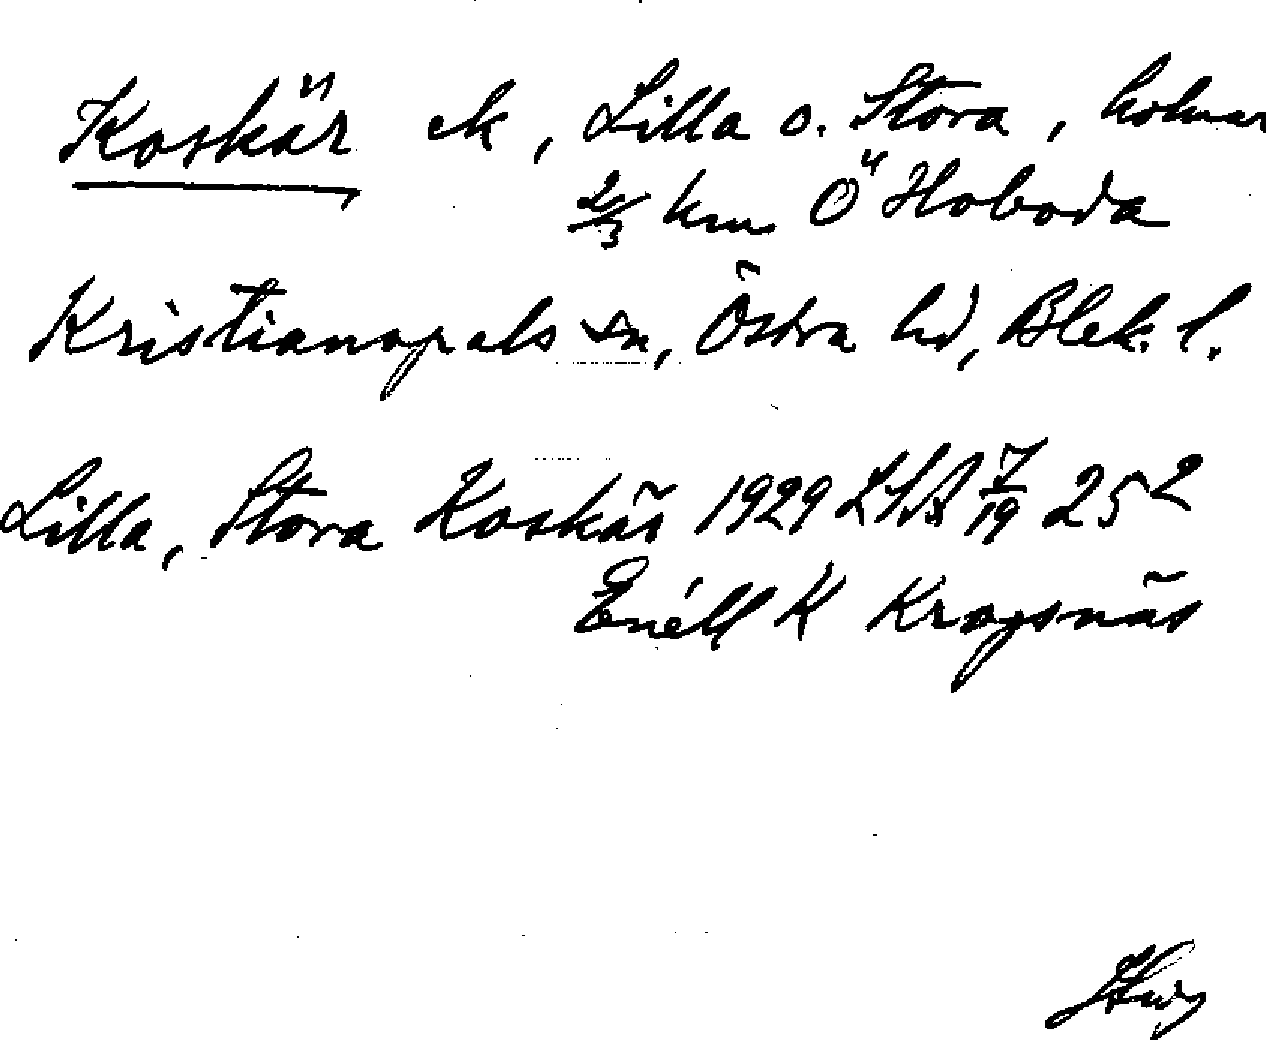 Koskär ek, Lilla o. Stora, holmar
2/3 km Ö Hoboda
Kristianopels sn, Östra hd, Blek. l.
Lilla, Stora Koskär 1929 LSA 7/19 25²
Enéll K Krogsnäs